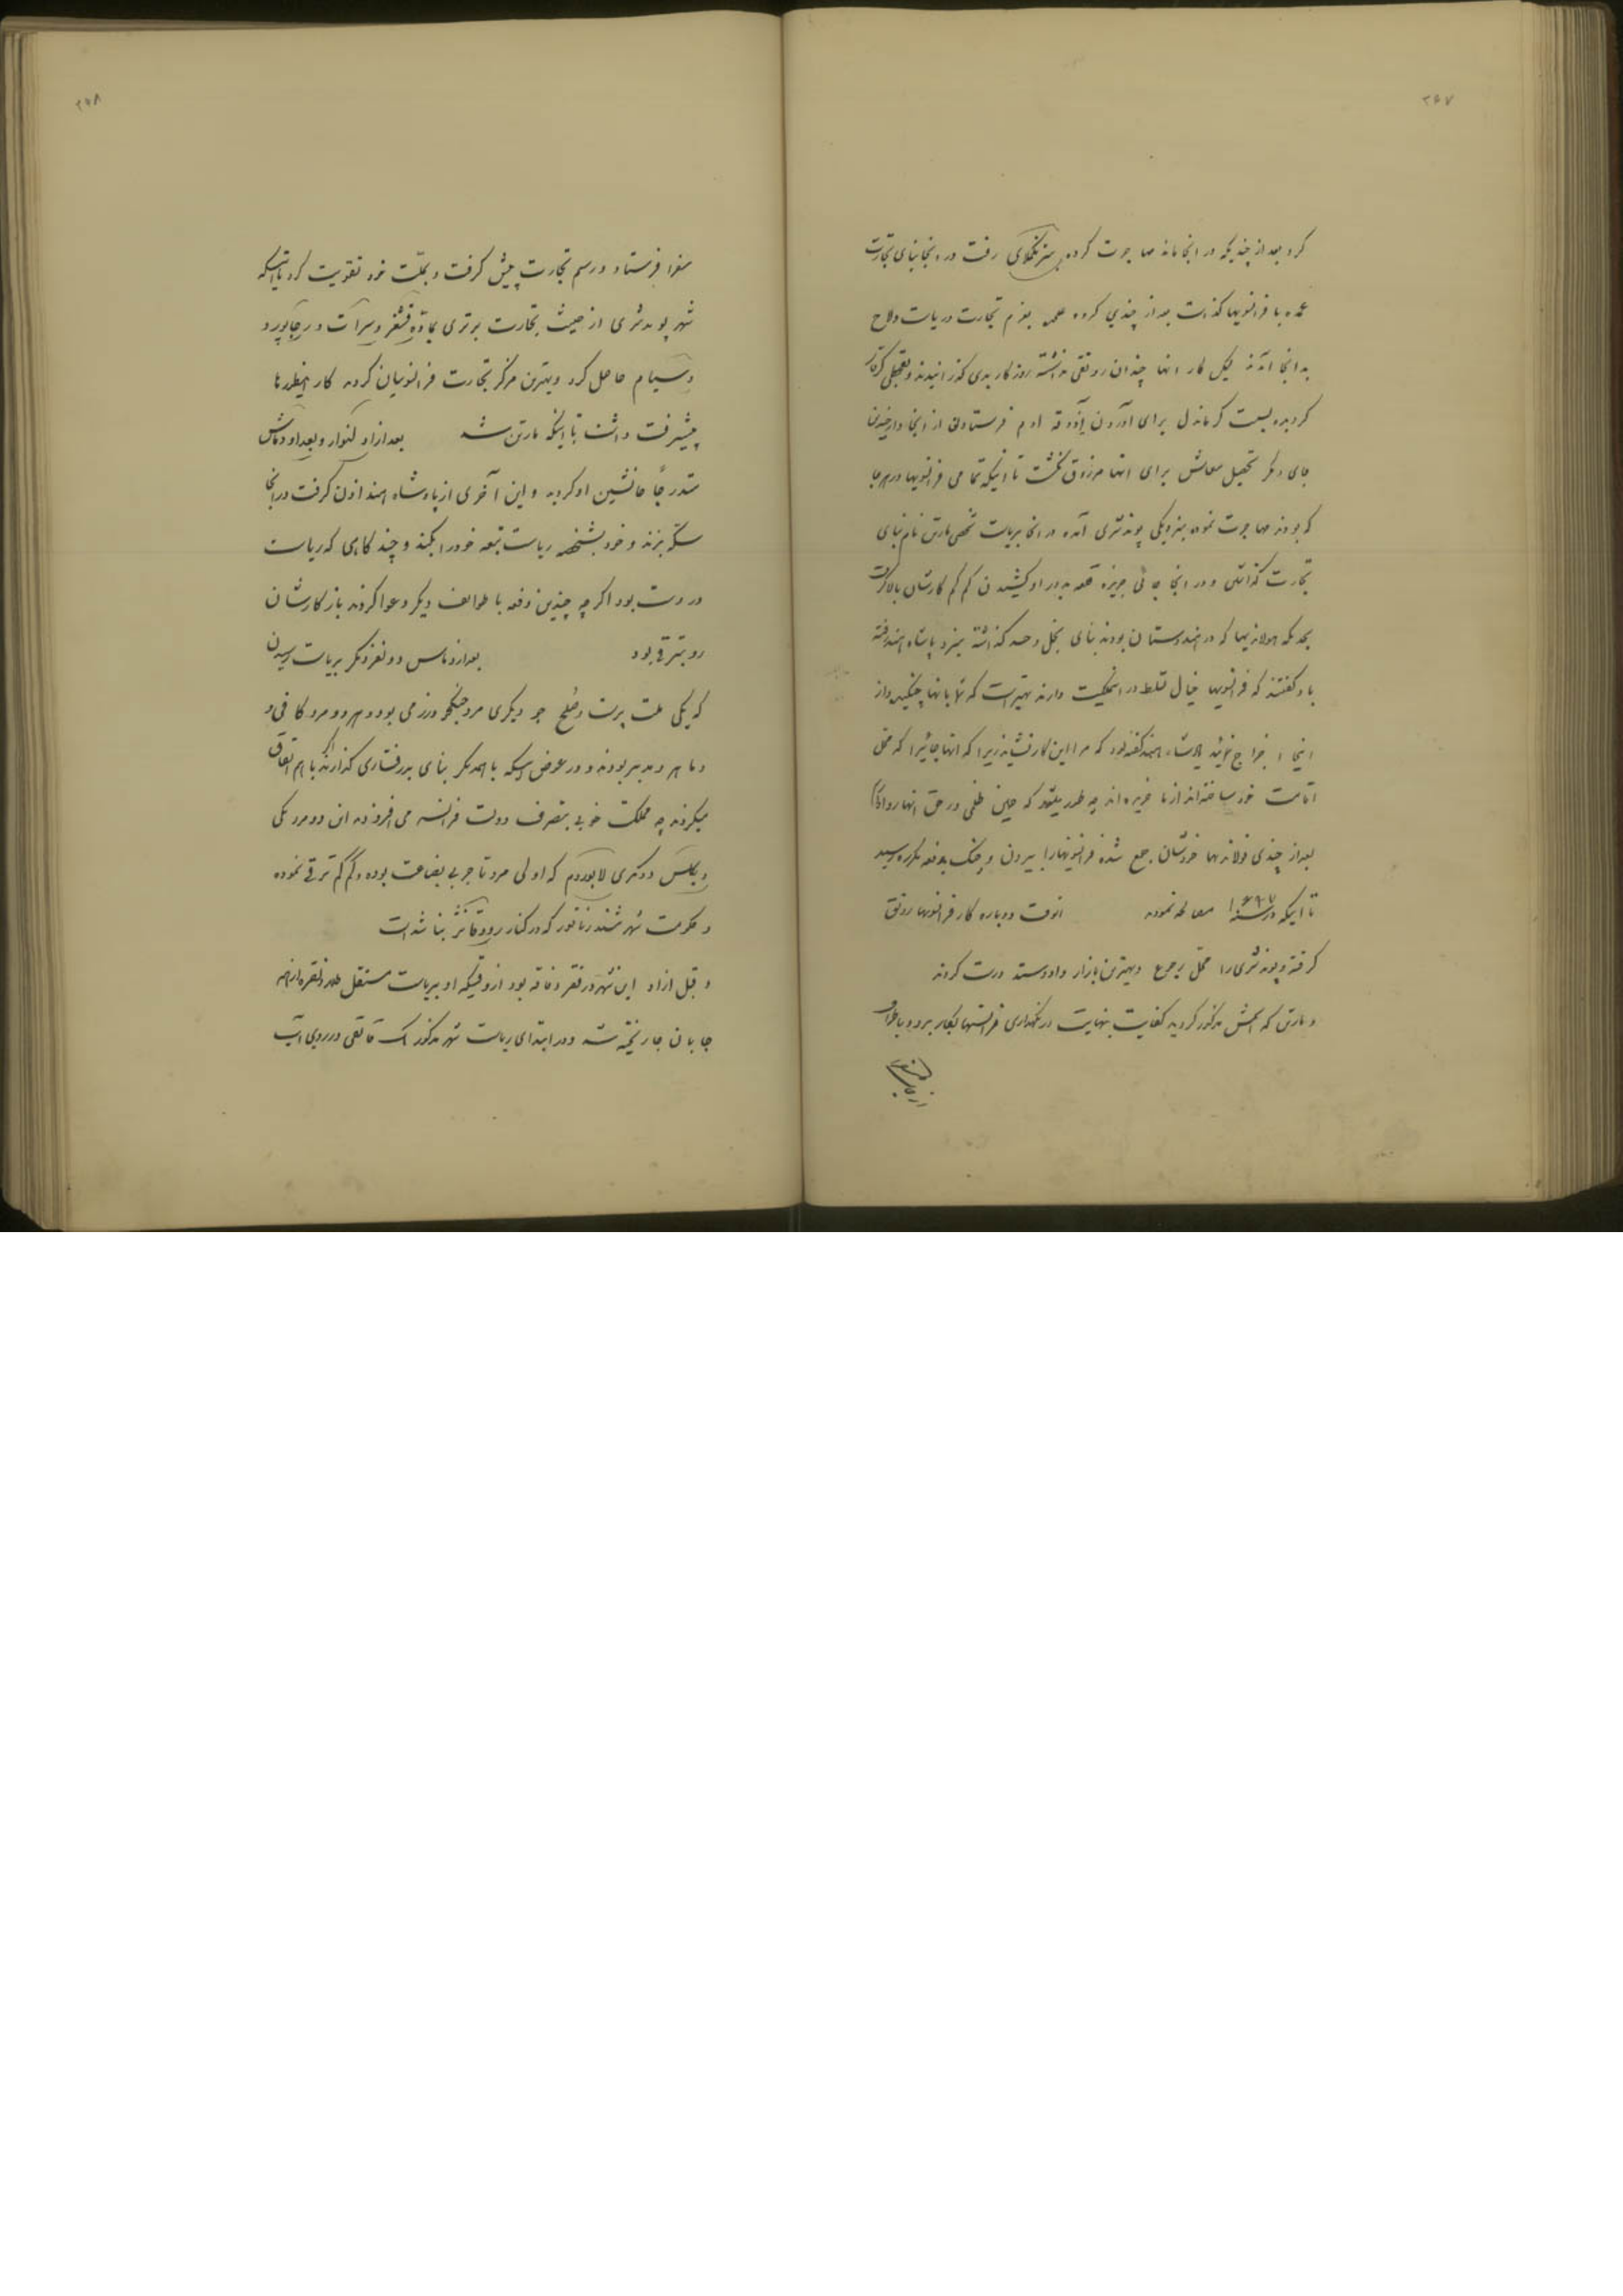 ۲۶۷
کرد بعد از چندیکه در انجا ماند مهاجرت کرده رفت در انجا بنای تجارت
عمده با فرانسویها گذاشت بعد از چندی کروه بعزم تجارت و
به انجا آمدند لیکن کار انها چندان رونقی نداشته روزگار بدی گذرانیدند و
گردیده بسمت کرماندل برای آوردن آذوقه ادم فرستاد از انجا و از چندین
جای دیگر تحصیل معاش برای انها نگشت تا اینکه تمامی فرانسویها در هرجا
که بودند مهاجرت نموده بنزدیکی پوندشری آمده در انجا بریاست شخصی مارتن نام بنای
تجارت گذاشتن و در انجا جائی خریده قلعه بدور او کشیدن کم کم کارشان بالا گرفت
بحدیکه هولاندیها که در هندوستان بودند بنای بخل و حسد گذاشته بنزد پادشاه هند رفته
باو گفتند که فرانسویها خیال تسلط در اینملکت دارند بهتر است که تو با انها جنگیده از
اینجا اخراج نمائید پادشاه هند گفته بود که مرا این کار نشاید زیرا که انها جائیرا که محل
اقامت خود ساخته‌اند از ما خریده‌اند چه طور میشود که چنین ظلمی در حق انها روا دارم
بعد از چندی هولاندیها خودشان جمع شده فرانسویهارا بیرون و جنک بدفعه مکرره رسید
تا اینکه در سنه ۱۶۹۷ مصالحه نمودند انوقت دوباره کار فرانسویها رونق
گرفته و پوندشری را محل رجوع و بهترین بازار داد و ستد درست کردند
و مارتن که اسمش مذکور گردید کفایت بنهایت در نگهداری فرانسویها بکار برد و باطراف
۲۶۸
سفرا فرستاد و رسم تجارت پیش گرفت و بملّت خود تقویت کرد تا اینکه
شهر پوندشری از حیث تجارت برتری و
و سیام حاصل کرد و بهترین مرکز تجارت فرانسویان گردید کار اینطورها
پیشرفت داشت تا اینکه مارتن بعد از او لنوار و بعد از او دوماس
متدرجاً جانشین او گردید و این آخری از پادشاه هند اذن گرفت در انجا
سکّه بزند و خود بشخصه ریاست تبعه خود را بکند و چند گاهی که ریاست
در دست بود اگرچه چندین دفعه با طوایف دیگر دعوا کردند باز کارشان
رو بترقی بود بعد از دوماس دو نفر دیگر بریاست رسیدن
که یکی ملت پرست و صلح جو دیگری مرد جنگجو و رزمی بود و هر دو مرد کافی و
و ماهر و مدبر بودند و در عوض اینکه با همدیگر بنای بدرفتاری گذارند اگر با هم اتفاق
میکردند چه مملکت خوبی بتصرف دولت فرانسه می افزودند این دو مرد یکی
دوپلکس و دیگری لابوردنه که اولی مرد تاجر بی بضاعت بوده و کم کم ترقی نموده
و حکومت شهر شندرناقور که در کنار رود قانژ بنا شده است
و قبل از او این شهر در فقر و فاقه بود از وقتیکه او بریاست مستقل شد و نفره از همه
جا بان جا ریخته شد و در ابتدای ریاست شهر مذکور یک قایقی در روی آب